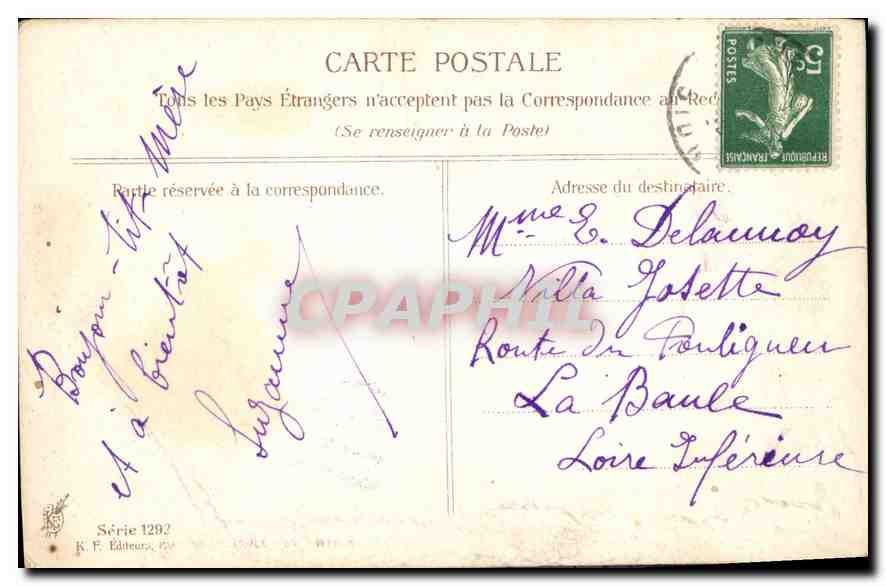 CARTE POSTALE
Tous les Pays Étrangers n'acceptent pas la Correspondance au Rec
(Se renseigner à la Poste)
Partie réservée à la correspondance.
Adresse du destinataire.
Bonjour - tit Mère
et à bientôt
Suzanne
Mme E. Delaunay
Villa Josette
Route du Pouliguen
La Baule
Loire Inférieure
Série 1292
K. F. Éditeurs,
CPAPHIL
5c
POSTES
REPUBLIQUE FRANÇAISE